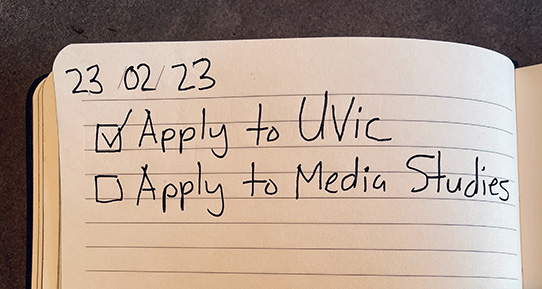 23/02/23
☑ Apply to UVic
☐ Apply to Media Studies